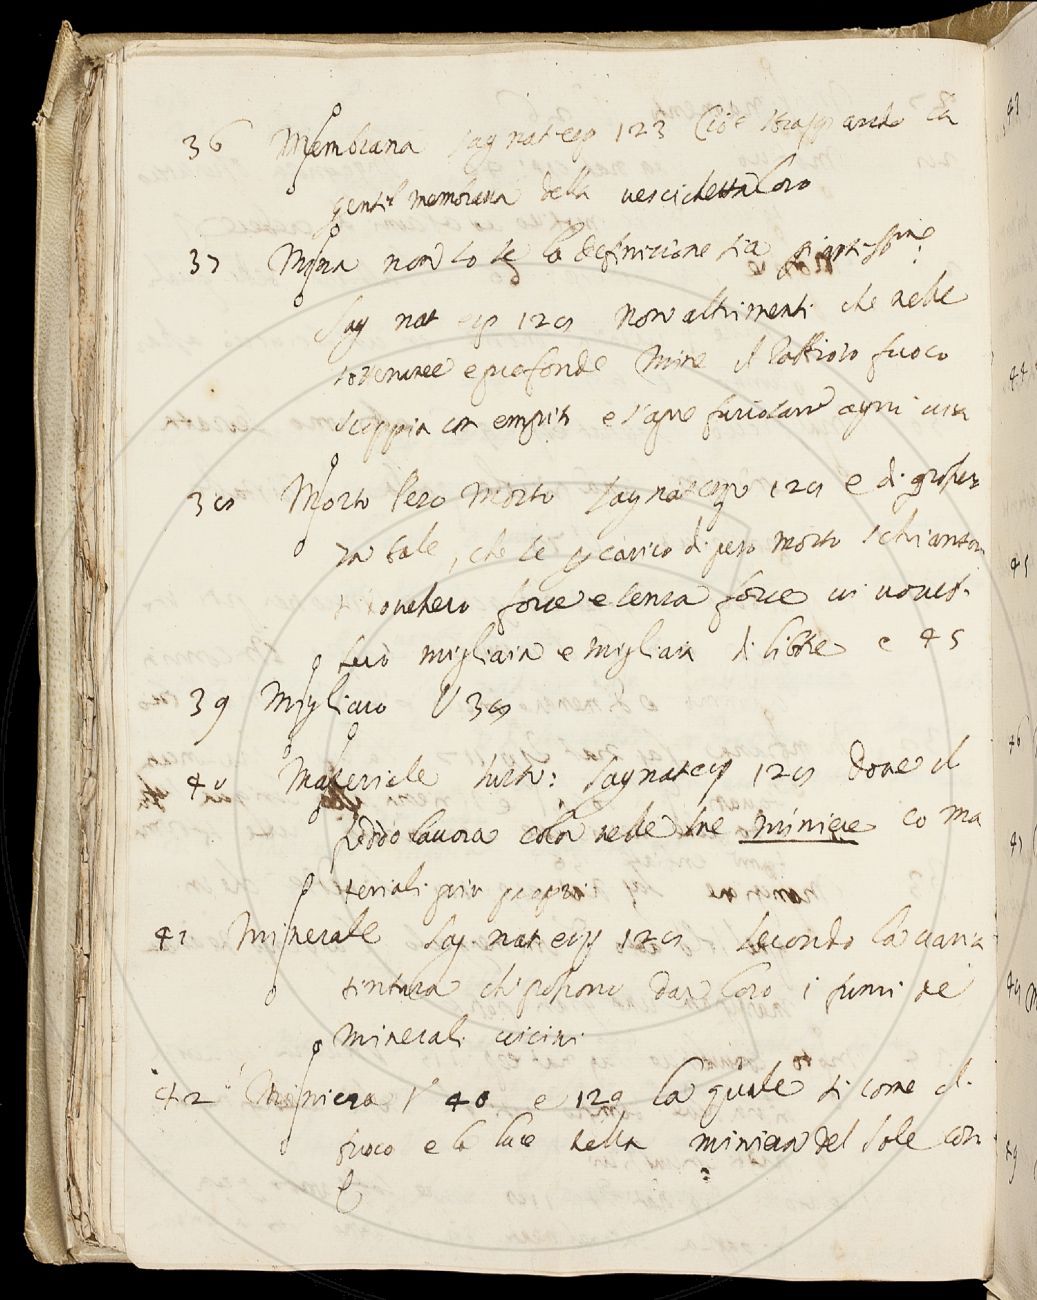 36 Membrana sag nat esp 123 Cioè strappando la
gentil membrana della vescichetta loro
37 Mina non so se la definizione sia
sag nat esp 128 non altrimenti che nelle
sotterranee e profonde Mine il racchiuso fuoco
scoppia con empito e s'apre furiosam ogni cosa
38 Morto Peso Morto sag nat esp 128 e di grossez
za tale, che se p carico di peso morto schiantar
si dovessero forse e senza forse ci vorreb.
bero migliaia e migliaia di libre e 45
39 Migliaio V 38
40 Materiale sust: sag nat esp 128 dove il
freddo lavora colà nelle sue miniere co ma
teriali più proprj
41 Minerale sag nat esp 128 secondo la varia
tintura che possono dar loro i fumi de
minerali vicini
42 Miniera V 40 e 129 la quale si come il
fuoco e la luce della miniera del sole con